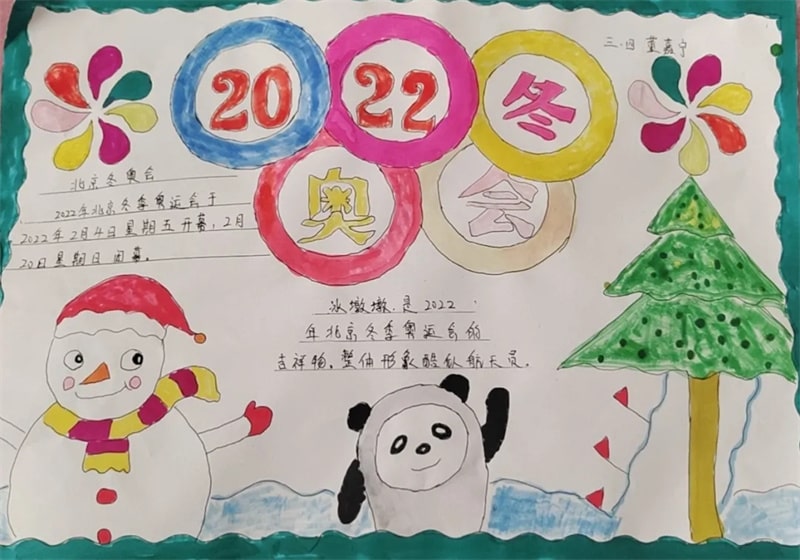 三.四 董嘉宁
2022冬
奥会
北京冬奥会
2022年北京冬季奥运会于
2022年2月4日星期五开幕，2月
20日星期日闭幕。
冰墩墩，是2022
年北京冬季奥运会的
吉祥物，整体形象酷似航天员。